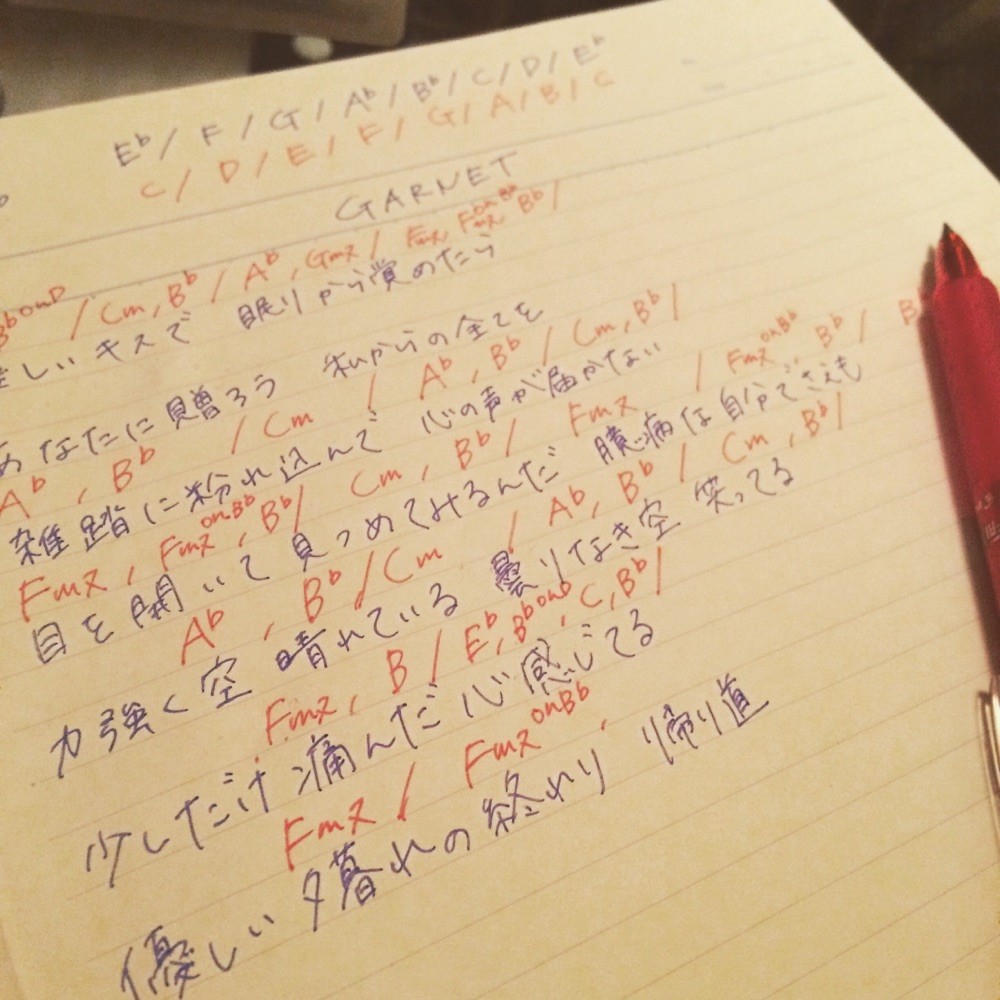 E♭/ F / G / A♭/ B♭/ C / D / E♭
C / D / E / F / G / A / B / C
GARNET
B♭onD / Cm, B♭ / A♭, Gm7 / Fm7, Fm7onB♭ B♭ /
しいキスで 眠りから覚めたら
あなたに贈ろう 私からの全てを
A♭, B♭ / Cm / A♭, B♭ / Cm, B♭ /
雑踏に紛れ込んで 心の声が届かない
Fm7, Fm7onB♭, B♭/ Cm, B♭/ Fm7 / Fm7onB♭ B♭ / B
目を開いて見つめてみるんだ 臆病な自分でさえも
A♭, B♭ / Cm / A♭, B♭ / Cm, B♭ /
力強く空 晴れている 曇りなき空 笑ってる
Fm7, B / E♭, B♭onD, C, B♭ /
少しだけ痛んだ心感じてる
Fm7 / Fm7onB♭,
優しい夕暮れの終わり 帰り道